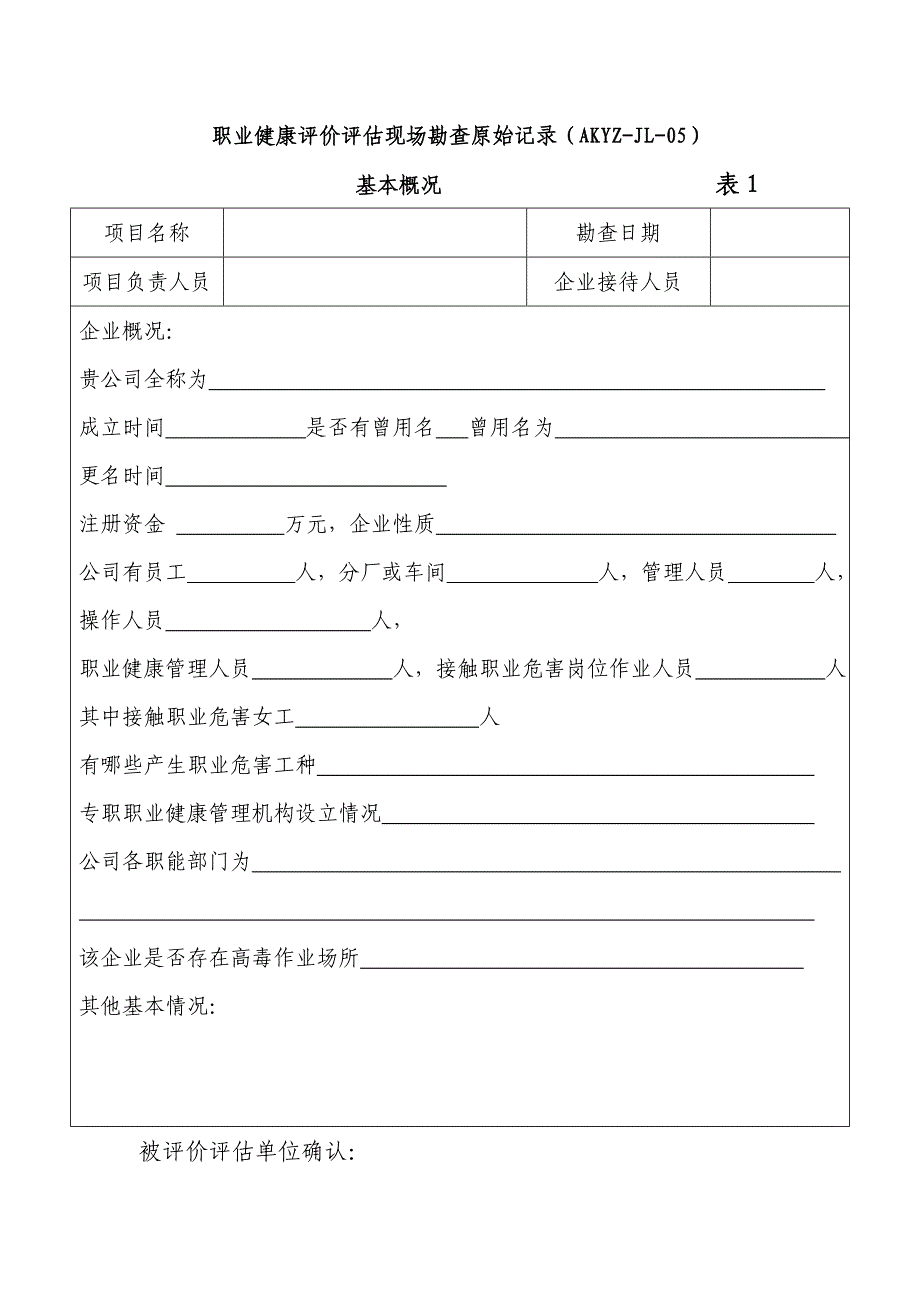 职业健康评价评估现场勘查原始记录（AKYZ-JL-05）
基本概况 表1
项目名称 勘查日期
项目负责人员 企业接待人员
企业概况：
贵公司全称为
成立时间 是否有曾用名 曾用名为
更名时间
注册资金 万元，企业性质
公司有员工 人，分厂或车间 人，管理人员 人，
操作人员 人，
职业健康管理人员 人，接触职业危害岗位作业人员 人
其中接触职业危害女工 人
有哪些产生职业危害工种
专职职业健康管理机构设立情况
公司各职能部门为
该企业是否存在高毒作业场所
其他基本情况：
被评价评估单位确认：